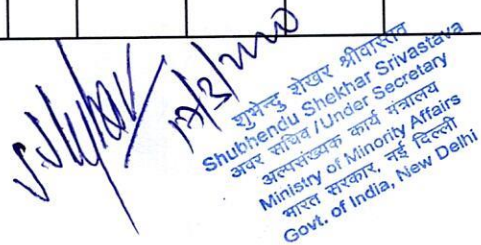 17/3/2020
शुभेन्दु शेखर श्रीवास्तव
Shubhendu Shekhar Srivastava
अवर सचिव/Under Secretary
अल्पसंख्यक कार्य मंत्रालय
Ministry of Minority Affairs
भारत सरकार, नई दिल्ली
Govt. of India, New Delhi